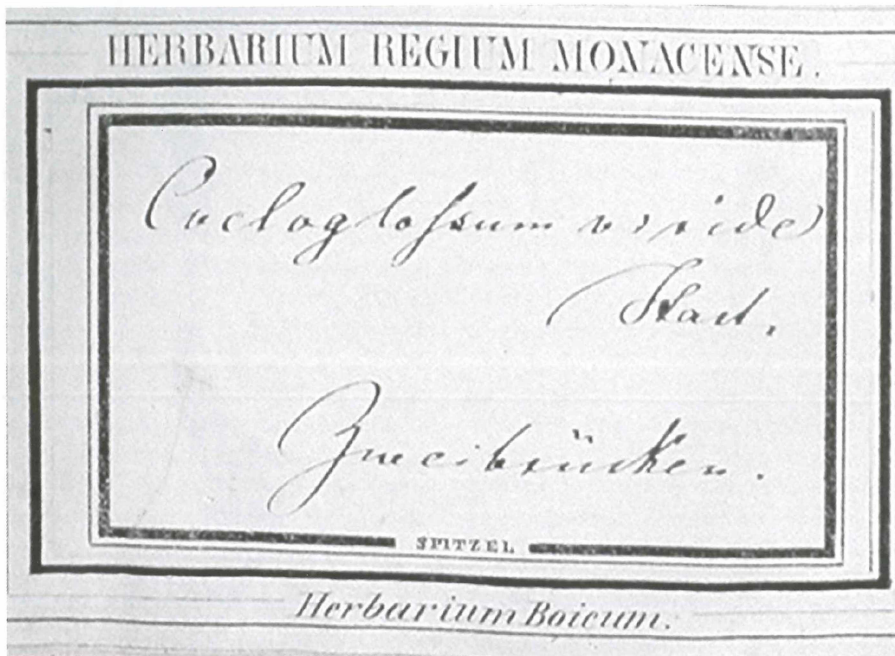 HERBARIUM REGIUM MONACENSE.
Coeloglossum viride
Hart.
Zweibrücken.
SPITZEL
Herbarium Boicum.